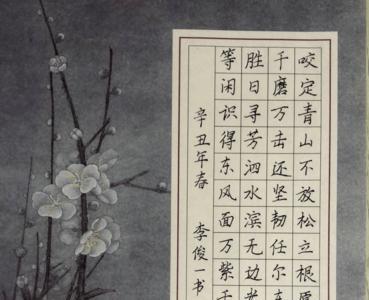 咬定青山不放松立根原
千磨万击还坚韧任尔东
胜日寻芳泗水滨无边光
等闲识得东风面万紫千
辛丑年春 李俊一书